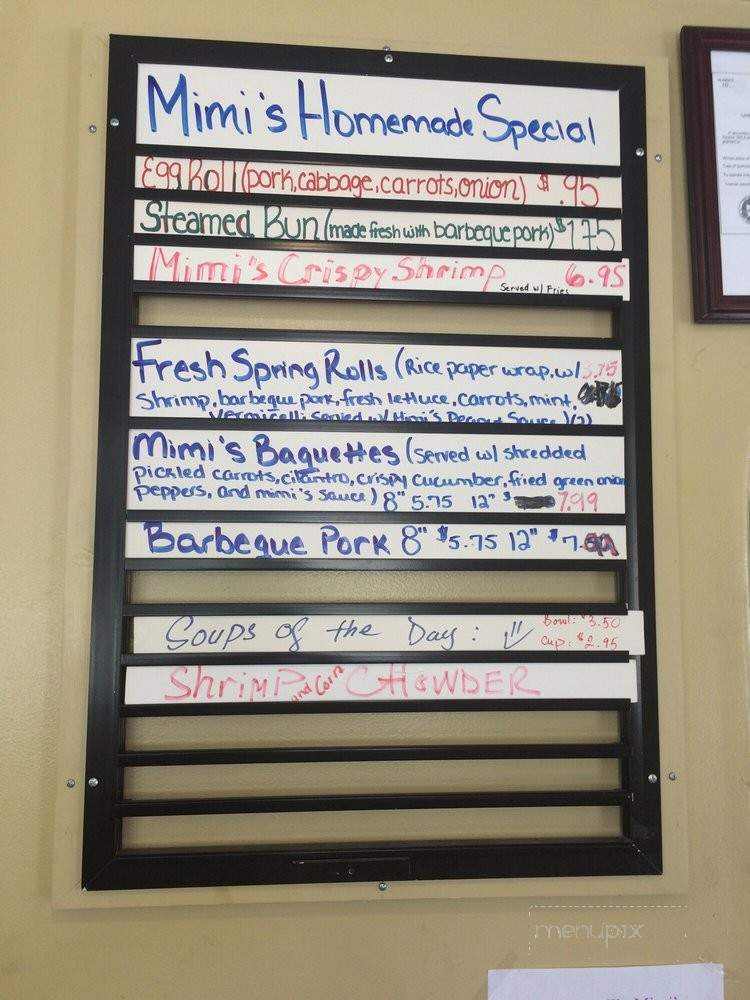 Mimi's Homemade Special
Egg Roll (pork, cabbage, carrots, onion) $ .95
Steamed Bun (made fresh with barbeque pork) $1.75
Mimi's Crispy Shrimp 6.95
Served w/ Fries
Fresh Spring Rolls (Rice paper wrap, w/ 3.75
Shrimp, barbeque pork, fresh lettuce, carrots, mint,
vermicelli served w/ Mimi's Peanut Sauce) (2)
Mimi's Baguettes (served w/ shredded
pickled carrots, cilantro, crispy cucumber, fried green onion
peppers, and mimi's sauce) 8" 5.75 12" $ 7.99
Barbeque Pork 8" $5.75 12" $7.
Soups of the Day: Bowl: $3.50
Cup: $2.95
Shrimp and Corn CHOWDER
menupix